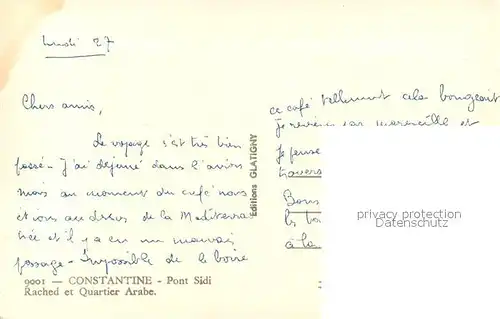 lundi 27
Chers amis,
Le voyage s'est très bien
passé - J'ai déjeuné dans l'avion
mais au moment du café nous
étions au dessus de la Méditerra
née et il y a eu un mauvais
passage - Impossible de le boire
9001 — CONSTANTINE - Pont Sidi
Rached et Quartier Arabe.
Editions GLATIGNY
ce café tellement cela bougeait
Je reviens par Marseille et
Je pense
travers
Bons
les
à la
privacy protection
ansichtskarten-center.de